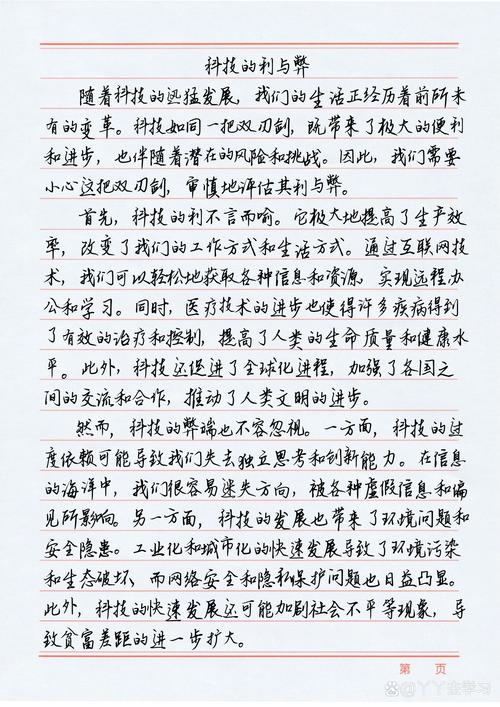 科技的利与弊
随着科技的迅猛发展，我们的生活正经历着前所未
有的变革。科技如同一把双刃剑，既带来了极大的便利
和进步，也伴随着潜在的风险和挑战。因此，我们需要
小心这把双刃剑，审慎地评估其利与弊。
首先，科技的利不言而喻。它极大地提高了生产效
率，改变了我们的工作方式和生活方式。通过互联网技
术，我们可以轻松地获取各种信息和资源，实现远程办
公和学习。同时，医疗技术的进步也使得许多疾病得到
了有效的治疗和控制，提高了人类的生命质量和健康水
平。此外，科技还促进了全球化进程，加强了各国之
间的交流和合作，推动了人类文明的进步。
然而，科技的弊端也不容忽视。一方面，科技的过
度依赖可能导致我们失去独立思考和创新能力。在信息
的海洋中，我们很容易迷失方向，被各种虚假信息和偏
见所影响。另一方面，科技的发展也带来了环境问题和
安全隐患。工业化和城市化的快速发展导致了环境污染
和生态破坏，而网络安全和隐私保护问题也日益凸显。
此外，科技的快速发展还可能加剧社会不平等现象，导
致贫富差距的进一步扩大。
第 页
@丫丫在学习